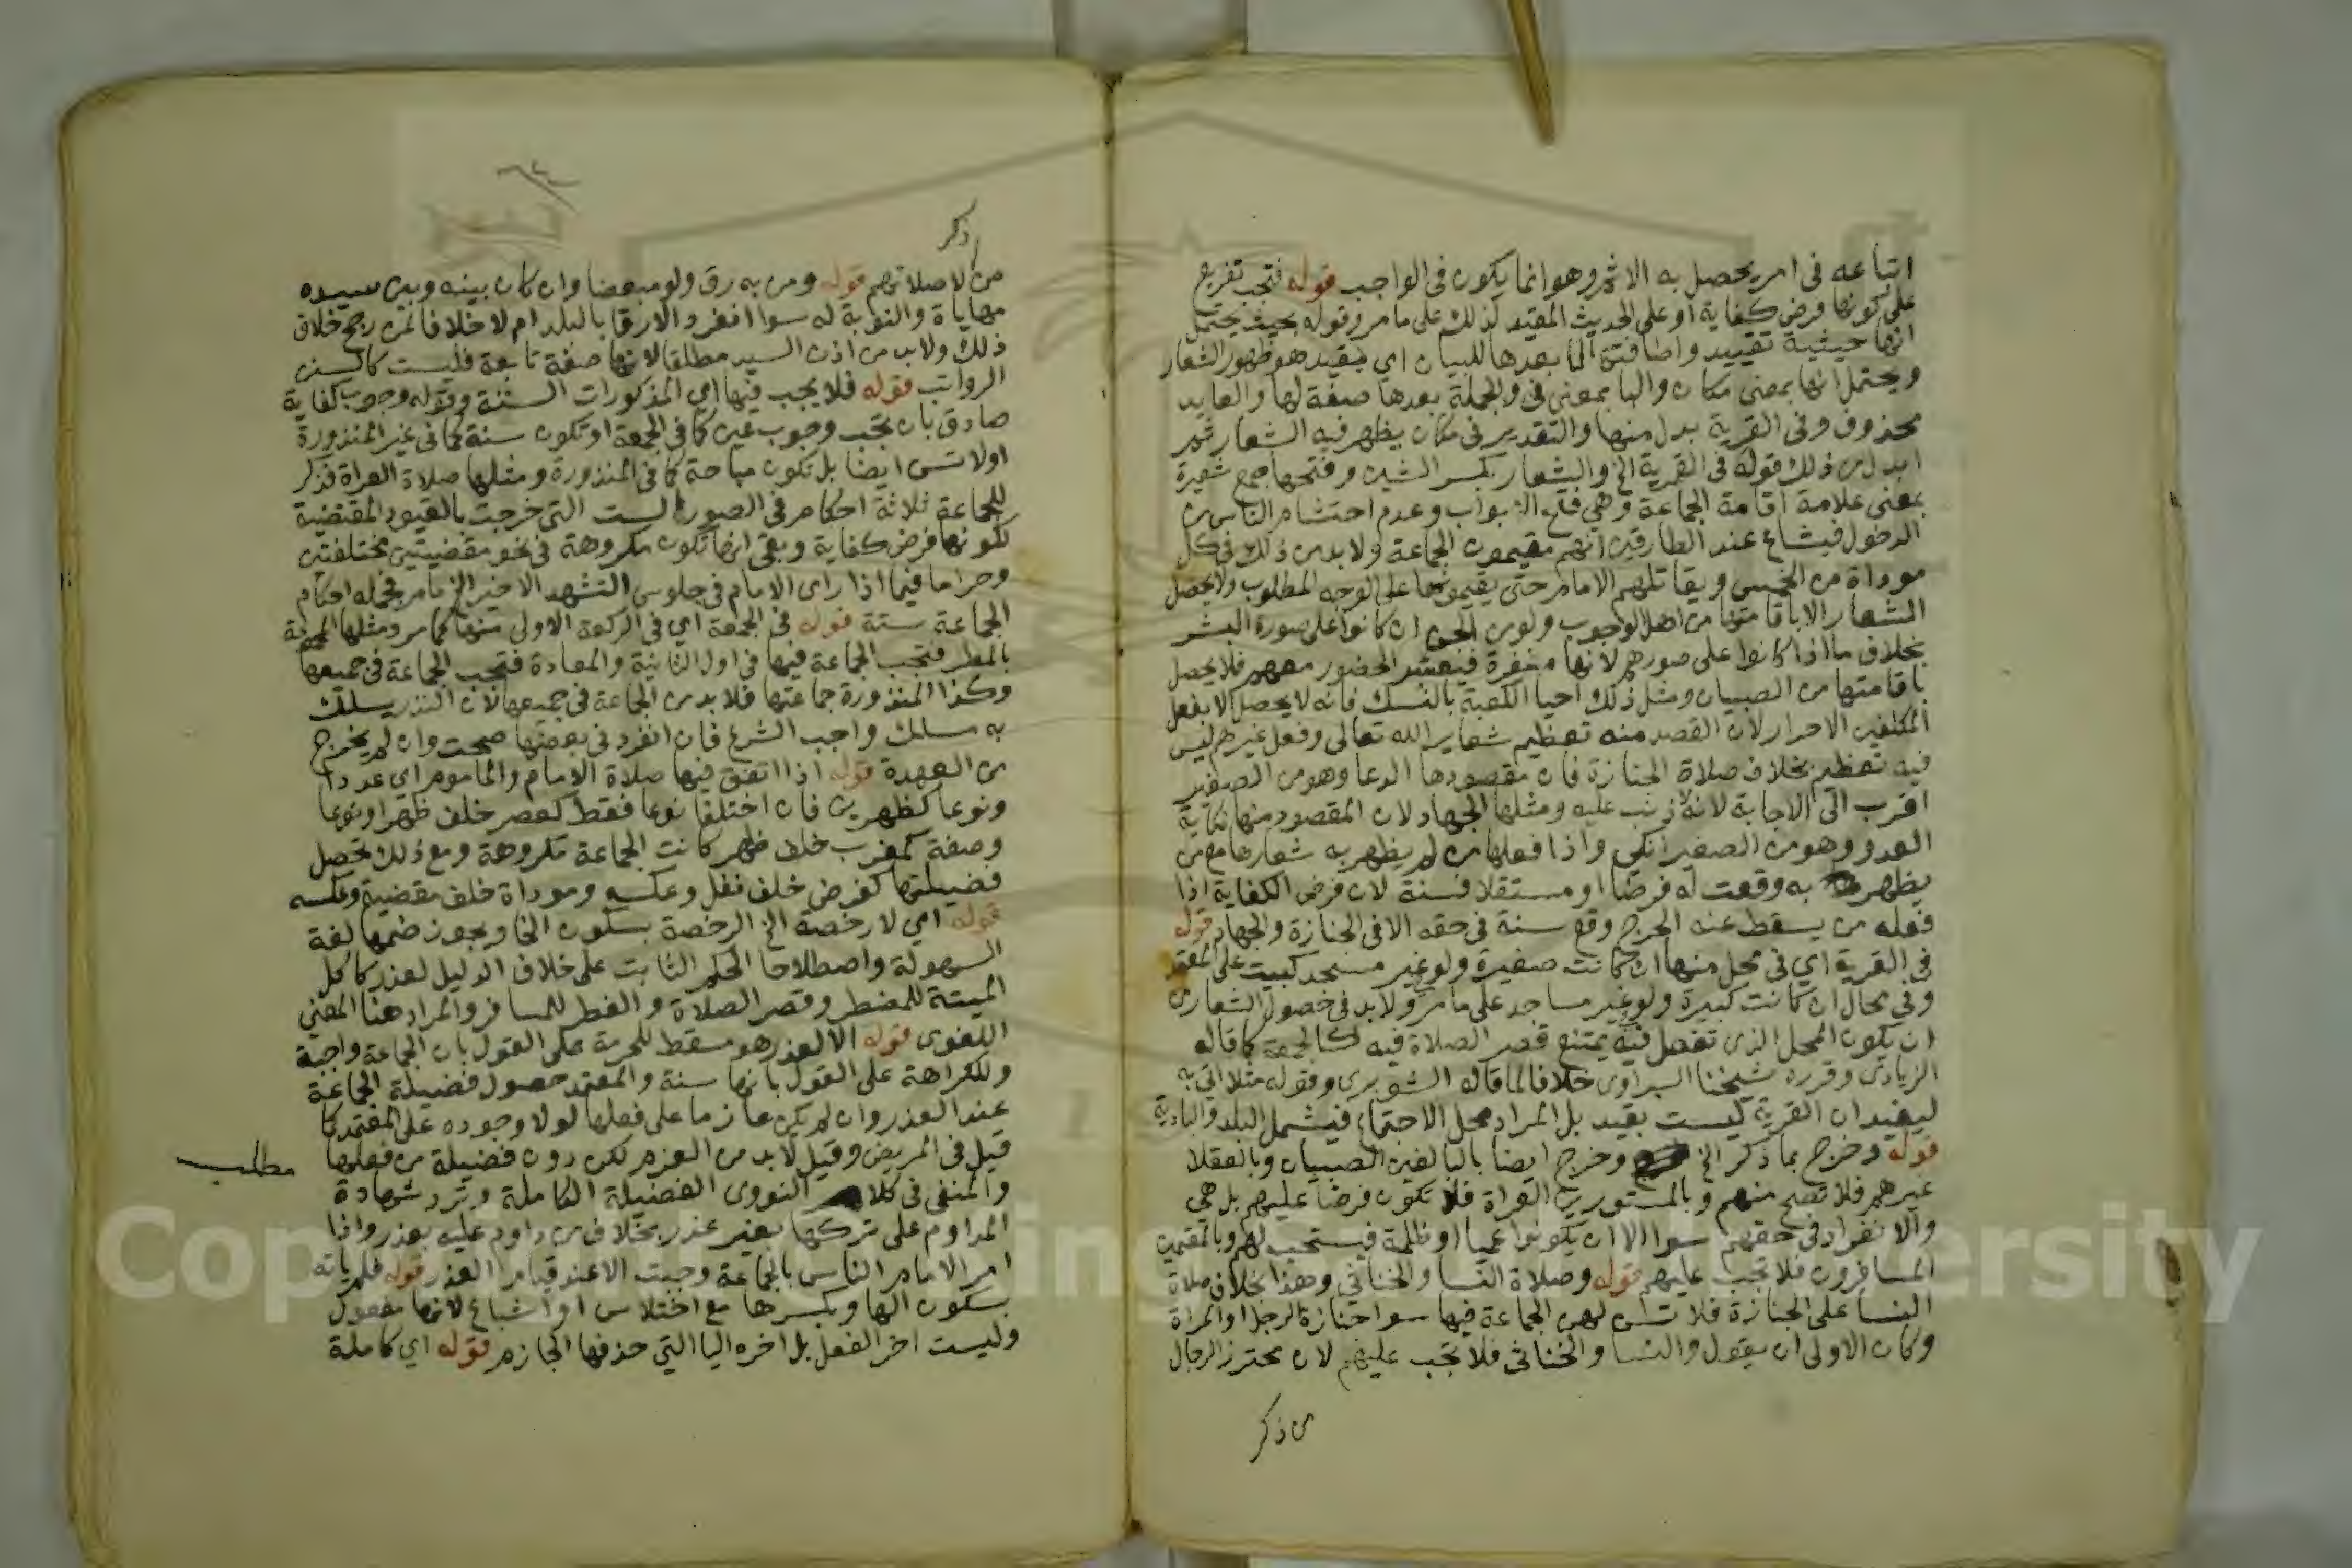 اتباعه في امر يحصل به الاثم وهو انما يكون في الواجب قوله فتجب تفريع
على كونها فرض كفاية او على الحديث المقيد لذلك على ما مر وقوله بحيث يحتمل
انها حيثية تقييد واضافتها لما بعدها للبيان اي بقيد هو ظهور الشعار
ويحتمل انها بمعنى مكان والبا بمعنى في والجملة بعدها صفة لها والعايد
محذوف وفي القرية بدل منها والتقدير في مكان يظهر فيه الشعار ثم
ابدل من ذلك قوله في القرية الخ والشعار بكسر الشين وفتحها جمع شعيرة
بمعنى علامة اقامة الجماعة وهي فتح الابواب وعدم احتشام الناس من
الدخول فيشاع عند الطارقين انهم مقيمون الجماعة ولا بد من ذلك في كل
موداة من الخمس ويقاتلهم الامام حتى يقيموها على الوجه المطلوب ولا يحصل
الشعار الا باقامتها من اهل الوجوب ولو من الجن ان كانوا على صورة البشر
بخلاف ما اذا كانوا على صورهم لانها منفرة فيتعذر الحضور معهم فلا يحصل
باقامتها من الصبيان ومثل ذلك احيا الكعبة بالنسك فانه لا يحصل الا بفعل
المكلفين الاحرار لان القصد منه تعظيم شعاير الله تعالى وفعل غيرهم ليس
فيه تعظيم بخلاف صلاة الجنازة فان مقصودها الدعا وهو من الصغير
اقرب الى الاجابة لانه لا ذنب عليه ومثلها الجهاد لان المقصود منها نكاية
العدو وهو من الصغير انكى واذا فعلها من لم يظهر به شعارها مع من
يظهر به وقعت له فرضا او مستقلا فسنة لان فرض الكفاية اذا
فعله من يسقط عنه الحرج وقع سنة في حقه الا في الجنازة والجهاد قوله
في القرية اي في محل منها ان كانت صغيرة ولو غير مسجد كبيت على المعتمد
وفي محال ان كانت كبيرة ولو غير مساجد على ما مر ولا بد في حصول الشعار من
ان يكون المحل الذي تفعل فيه يمتنع قصر الصلاة فيه كالجمعة كما قاله
الزيادي وقرره شيخنا الشبراوي خلافا لما قاله الشوبري وقوله مثلا اتى به
ليفيد ان القرية ليست بقيد بل المراد محل الاجتماع فيشمل البلد والبادية
قوله وخرج بما ذكر الخ وخرج ايضا بالبالغين الصبيان وبالعقلا
غيرهم فلا تصح منهم وبالمستورين العراة فلا تكون فرضا عليهم بل هي
والانفراد في حقهم سوا الا ان يكونوا عميا او ظلمة فيستحب لهم وبالمقيمين
المسافرون فلا تجب عليهم قوله وصلاة النسا والخناثي وهذا بخلاف صلاة
النسا على الجنازة فلا تسن لهن الجماعة فيها سوا جنازة الرجل او المراة
وكان الاولى ان يقول والنسا والخناثي فلا تجب عليهم لان محترز الرجال
من ذكر
ذكر
من لا صلاتهم قوله ومن به رق ولو مبعضا وان كان بينه وبين سيده
مهاياة والنوبة له سوا انفرد الارقا بالبلد ام لا خلافا لمن رجح خلاف
ذلك ولا بد من اذن السيد مطلقا لانها صفة تابعة فليست كالسنن
الرواتب قوله فلا يجب فيها اي المذكورات الستة وقوله وجوب كفاية
صادق بان تجب وجوب عين كما في الجمعة او تكون سنة كما في غير المنذورة
او لا تسن ايضا بل تكون مباحة كما في المنذورة ومثلها صلاة العراة فذكر
للجماعة ثلاثة احكام في الصور الست التي خرجت بالقيود المقتضية
لكونها فرض كفاية وبقي انها تكون مكروهة في نحو مقضيتين مختلفتين
وحراما فيما اذا راى الامام في جلوس التشهد الاخير الخ ما مر فجمله احكام
الجماعة ستة قوله في الجمعة اي في الركعة الاولى منها كما مر ومثلها المجموعة
بالمطر فتجب الجماعة فيها في اول الثانية والمعادة فتجب الجماعة في جميعها
وكذا المنذورة جماعتها فلا بد من الجماعة في جميعها لان النذر يسلك
به مسلك واجب الشرع فان انفرد في بعضها صحت وان لم يخرج
من العهدة قوله اذا اتفق فيها صلاة الامام والماموم اي عددا
ونوعا كظهرين فان اختلفا نوعا فقط كعصر خلف ظهر او نوعا
وصفة كمغرب خلف ظهر كانت الجماعة مكروهة ومع ذلك تحصل
فضيلتها كفرض خلف نفل وعكسه وموداة خلف مقضية وعكسه
قوله اي لا رخصة الخ الرخصة بسكون الخا ويجوز ضمها لغة
السهولة واصطلاحا الحكم الثابت على خلاف الدليل لعذر كاكل
الميتة للمضطر وقصر الصلاة والفطر للمسافر والمراد هنا المعنى
اللغوي قوله الا لعذر هو مسقط للحرمة على القول بان الجماعة واجبة
وللكراهة على القول بانها سنة والمعتمد حصول فضيلة الجماعة
عند العذر وان لم يكن عازما على فعلها لولا وجوده على المعتمد كما
قيل في المريض وقيل لا بد من العزم لكن دون فضيلة من فعلها
مطلب
والمنفي في كلام النووي الفضيلة الكاملة وترد شهادة
المداوم على تركها بغير عذر بخلاف من داوم عليه بعذر واذا
امر الامام الناس بالجماعة وجبت الا عند قيام العذر قوله فلم ياته
بسكون الها وبكسرها مع اختلاس او اشباع لانها مفعول
وليست اخر الفعل بل اخره اليا التي حذفها الجازم قوله اي كاملة